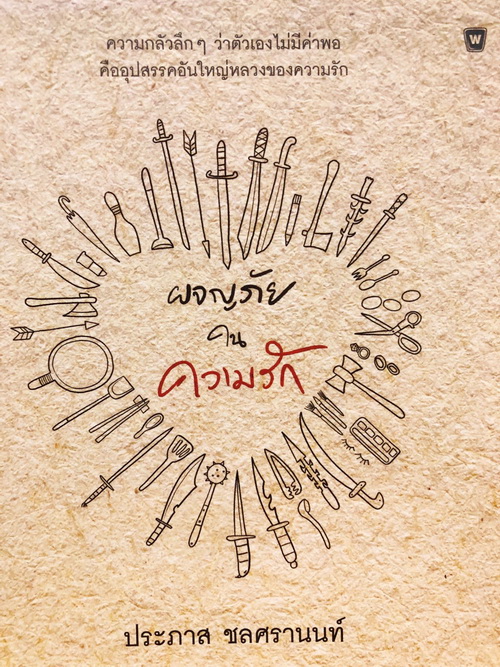 ความกลัวลึก ๆ ว่าตัวเองไม่มีค่าพอ
คืออุปสรรคอันใหญ่หลวงของความรัก
W
ผจญภัย
ใน
ความรัก
ประภาส ชลศรานนท์